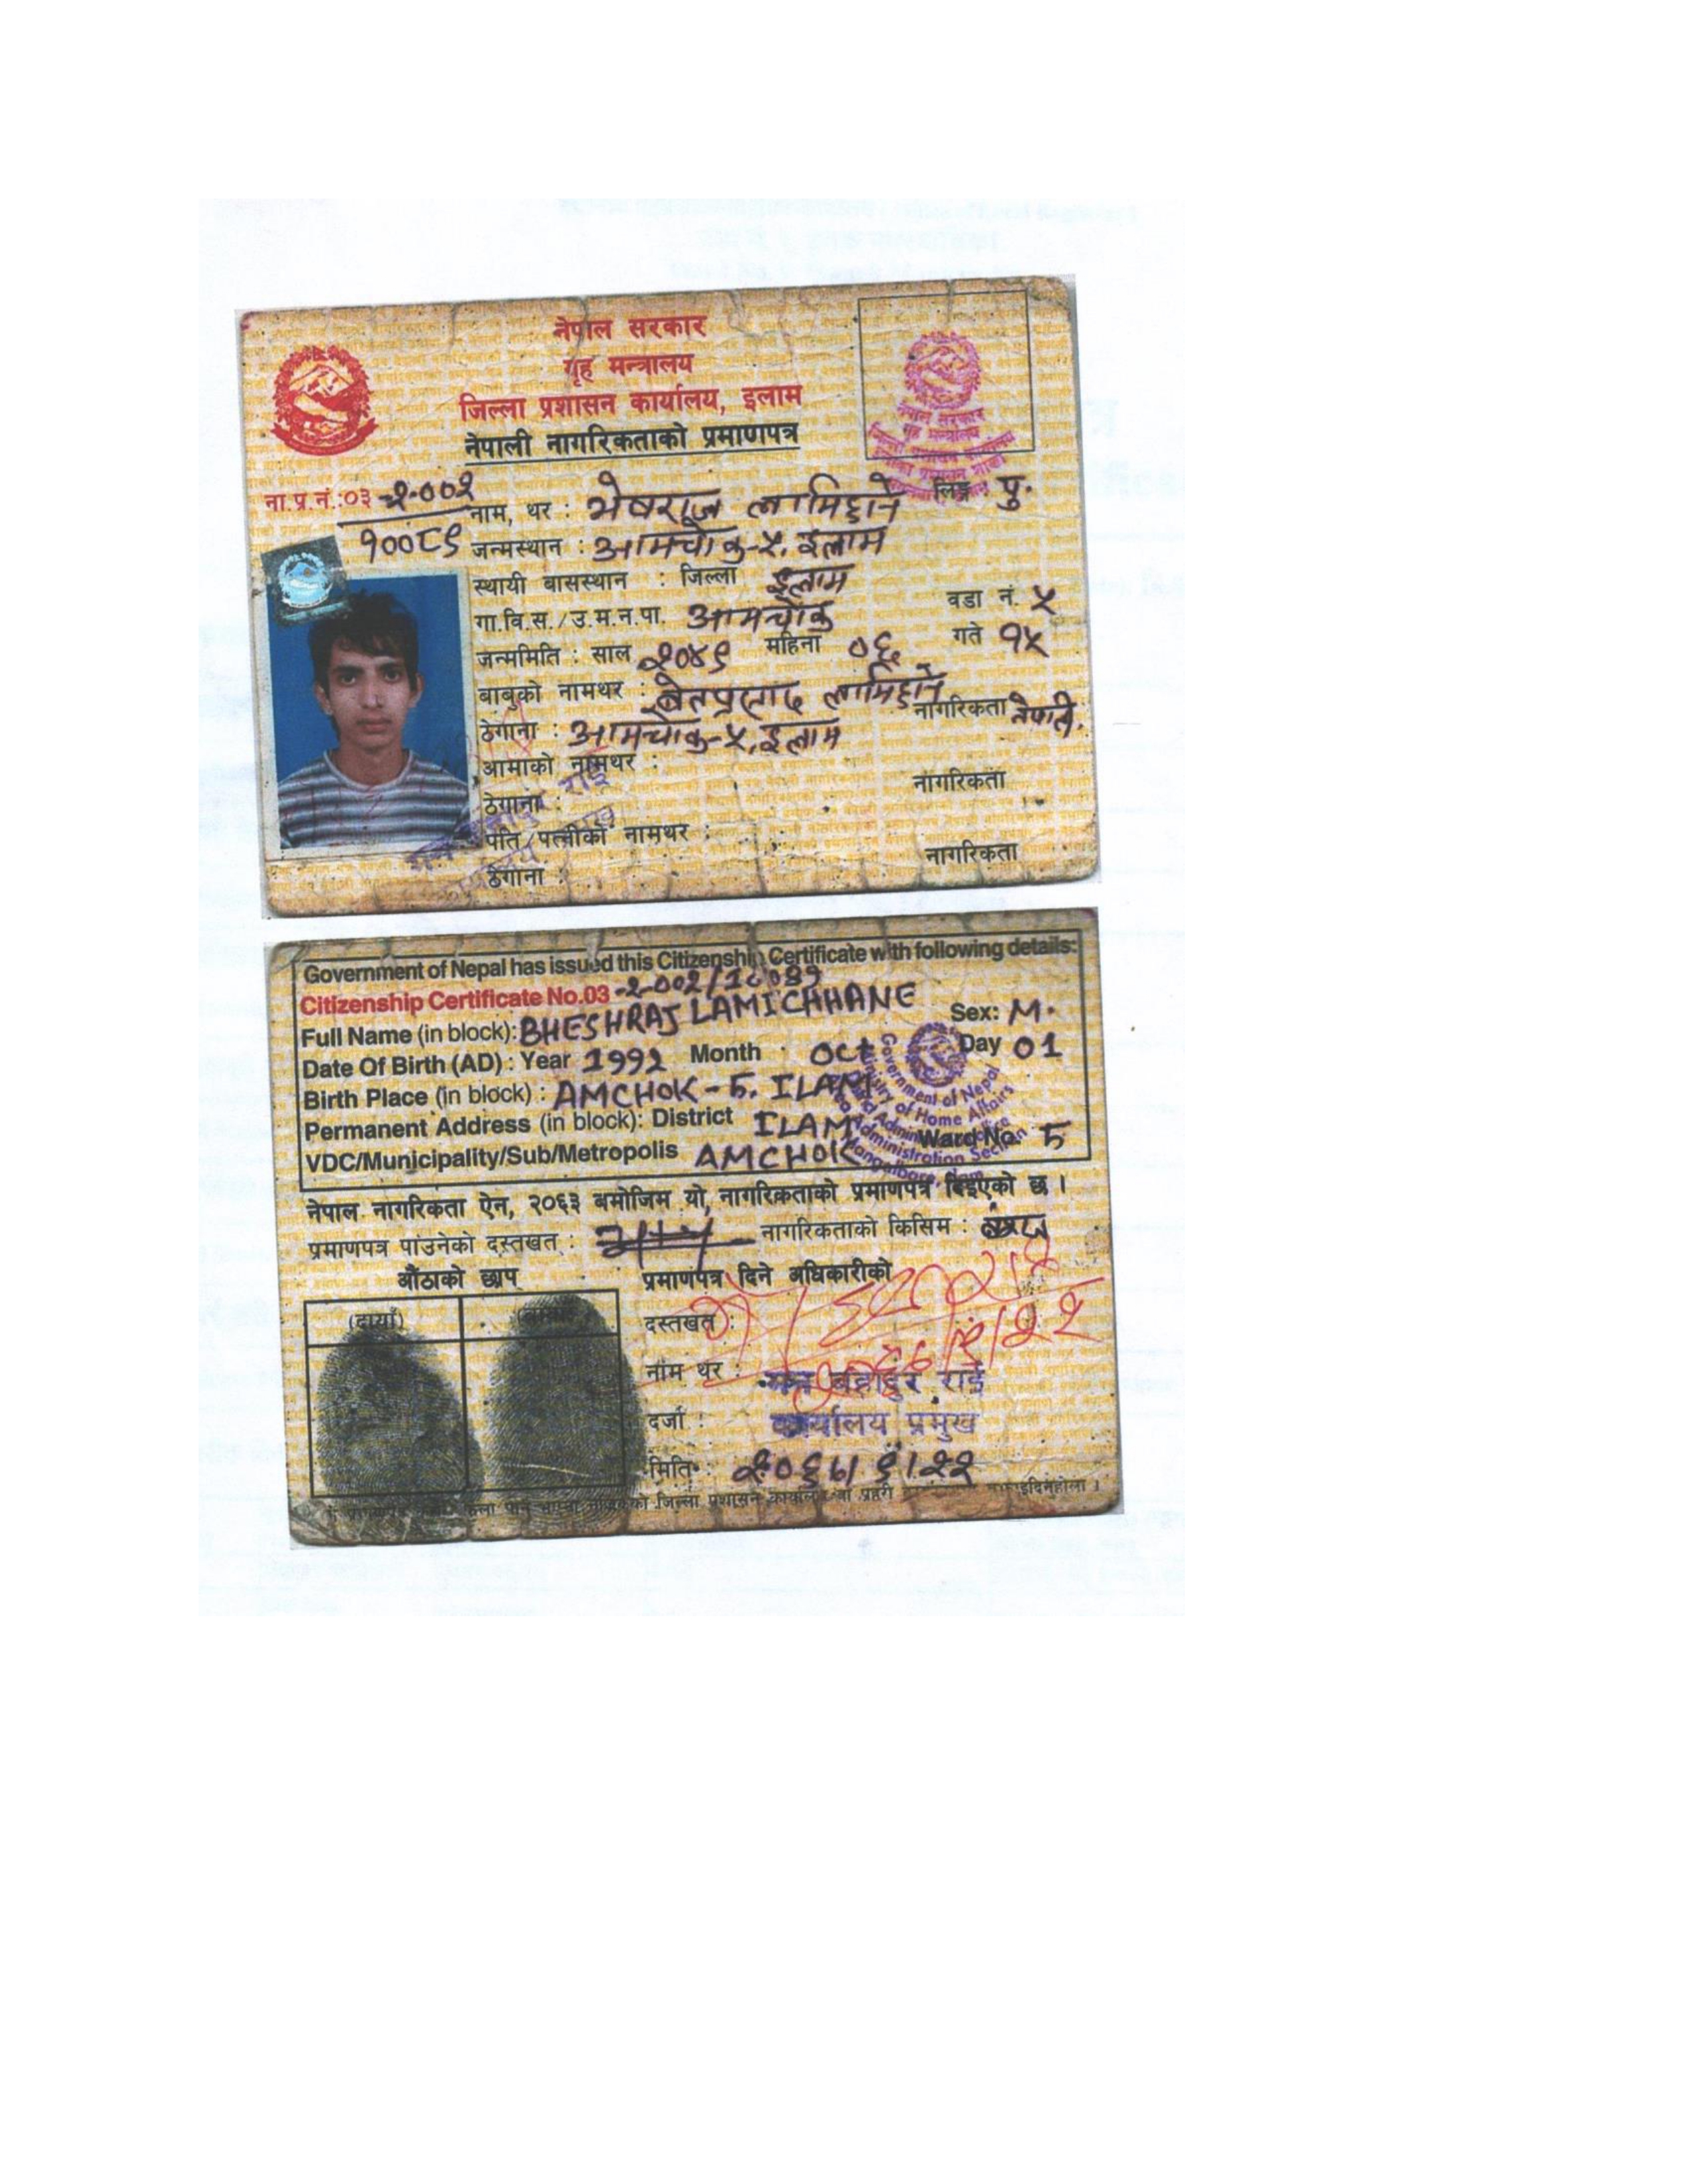 नेपाल सरकार
गृह मन्त्रालय
जिल्ला प्रशासन कार्यालय, इलाम
नेपाली नागरिकताको प्रमाणपत्र
नेपाल सरकार
गृह मन्त्रालय
ना.प्र.नं.:०३ -२-००२
१००८९
लिङ्ग : पु.
नाम, थर : भेषराज लामिछाने
जन्मस्थान : आमचोक-५, इलाम
स्थायी बासस्थान : जिल्ला इलाम
गा.वि.स./उ.म.न.पा. आमचोक वडा नं. ५
जन्ममिति : साल २०४९ महिना ०६ गते १५
बाबुको नामथर : लामिछाने
ठेगाना : आमचोक-५, इलाम नागरिकता नेपाली.
आमाको नामथर :
ठेगाना : नागरिकता
पति/पत्नीको नामथर :
ठेगाना : नागरिकता
Government of Nepal has issued this Citizenship Certificate with following details:
Citizenship Certificate No.03 -2-002/10089
Full Name (in block): BHESHRAJ LAMICHHANE Sex: M.
Date Of Birth (AD) : Year 1992 Month Oct Day 01
Birth Place (in block) : AMCHOK - 5, ILAM
Permanent Address (in block): District ILAM
VDC/Municipality/Sub/Metropolis AMCHOK Ward No. 5
Government of Nepal
Ministry of Home Affairs
Administration Section
Mangalbare, Ilam
नेपाल नागरिकता ऐन, २०६३ बमोजिम यो, नागरिकताको प्रमाणपत्र दिइएको छ ।
प्रमाणपत्र पाउनेको दस्तखत : नागरिकताको किसिम : वंशज
औंठाको छाप प्रमाणपत्र दिने अधिकारीको
(दायाँ)
दस्तखत :
नाम थर : मन बहादुर राई
दर्जा : कार्यालय प्रमुख
मिति : २०६७।९।२२